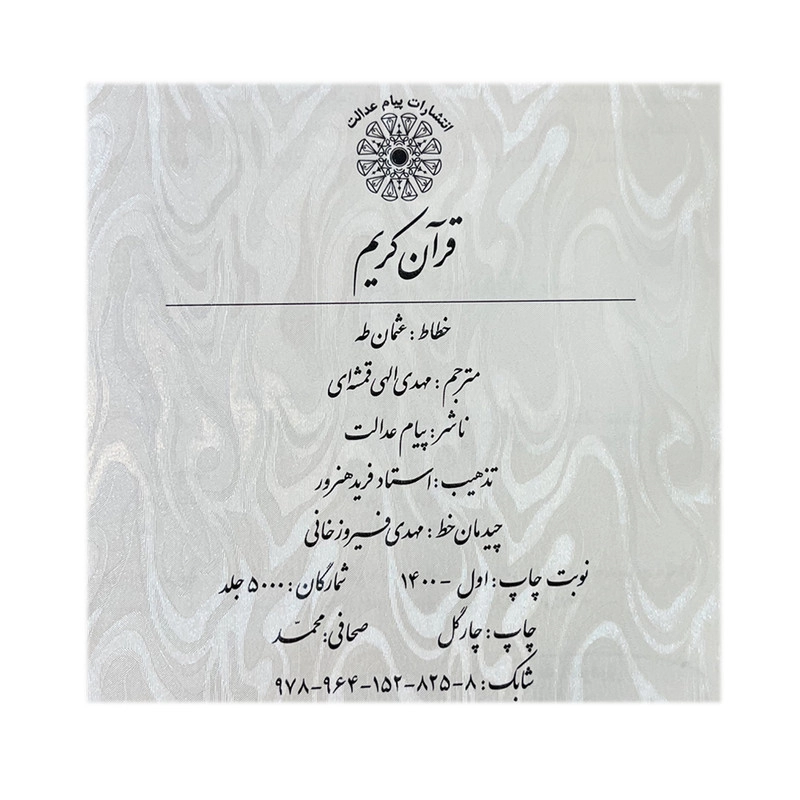 انتشارات پیام عدالت
قرآن کریم
خطاط : عثمان طه
مترجم : مهدی الهی قمشه‌ای
ناشر : پیام عدالت
تذهیب : استاد فرید هنرور
چیدمان خط : مهدی فیروزخانی
نوبت چاپ : اول - ۱۴۰۰ شمارگان : ۵۰۰۰ جلد
چاپ : چارگل صحافی : محمّد
شابک : ۸-۸۲۵-۱۵۲-۹۶۴-۹۷۸